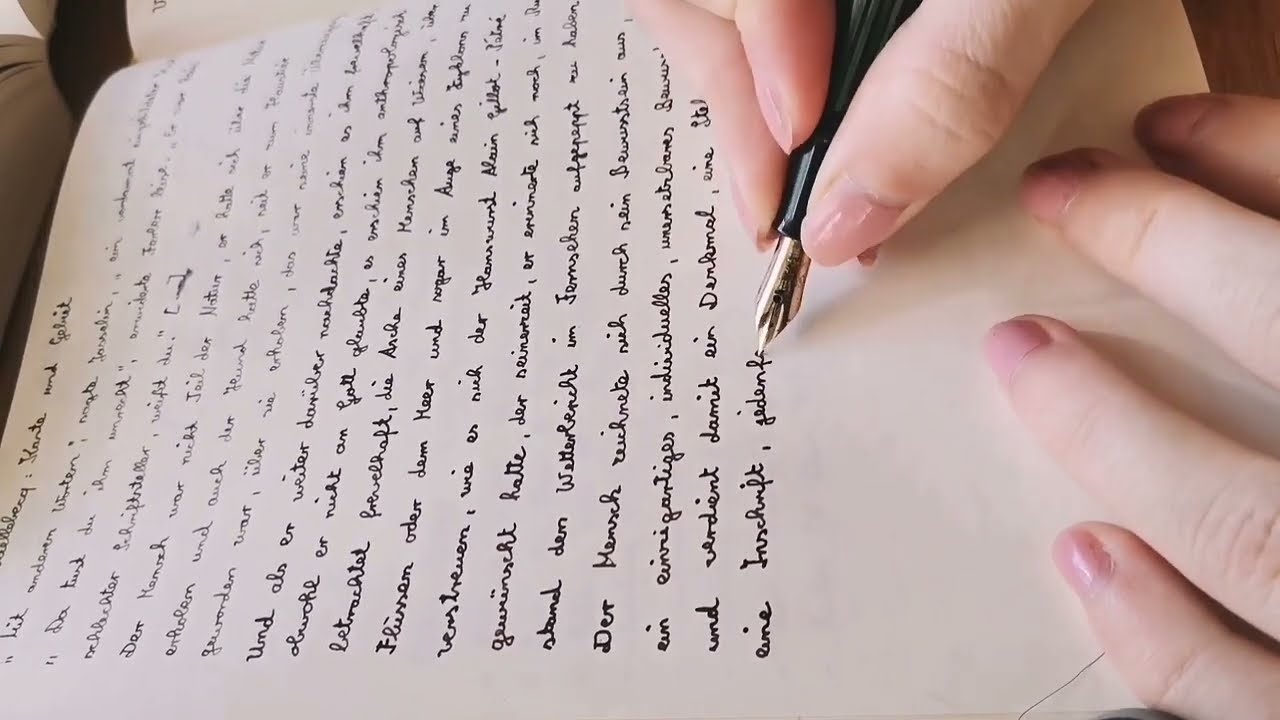 Karte und Gebiet
"Mit anderen Worten", sagte Jasselin, "ein
"Da tust du ihm unrecht", antwortete
schlechter Schriftsteller, weißt du." [...]
Der Mensch war nicht Teil der Natur, er hatte sich über die
erhoben und auch der Hund hatte sich, seit er zum Haustier
geworden war, über sie erhoben, das war seine innerste
Und als er weiter darüber nachdachte, erschien es ihm frevelhaft
obwohl er nicht an Gott glaubte, es erschien ihm anthropologisch
betrachtet frevelhaft, die Asche eines Menschen auf Wiesen,
Flüssen oder dem Meer und sogar im Auge eines Zyklons zu
verstreuen, wie es sich der Hanswurst Alain Gillot-Pétré
gewünscht hatte, der seinerzeit, er erinnerte sich noch, im
stand den Wetterbericht im Fernsehen aufgepeppt zu haben
Der Mensch zeichnete sich durch sein Bewusstsein aus,
ein einzigartiges, individuelles, unersetzbares
und verdient damit ein Denkmal, eine Stel
eine Inschrift, jedenf